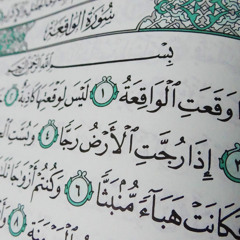 سُورَةُ الوَاقِعَةِ
بِسْمِ اللَّهِ الرَّحْمَٰنِ الرَّحِيمِ
وَقَعَتِ ٱلْوَاقِعَةُ ١ لَيْسَ لِوَقْعَتِهَا كَاذِبَةٌ ٢
٣ إِذَا رُجَّتِ ٱلْأَرْضُ رَجًّا ٤ وَبُسَّتِ
فَكَانَتْ هَبَآءً مُّنۢبَثًّا ٦ وَكُنتُمْ أَزْوَٰجًا